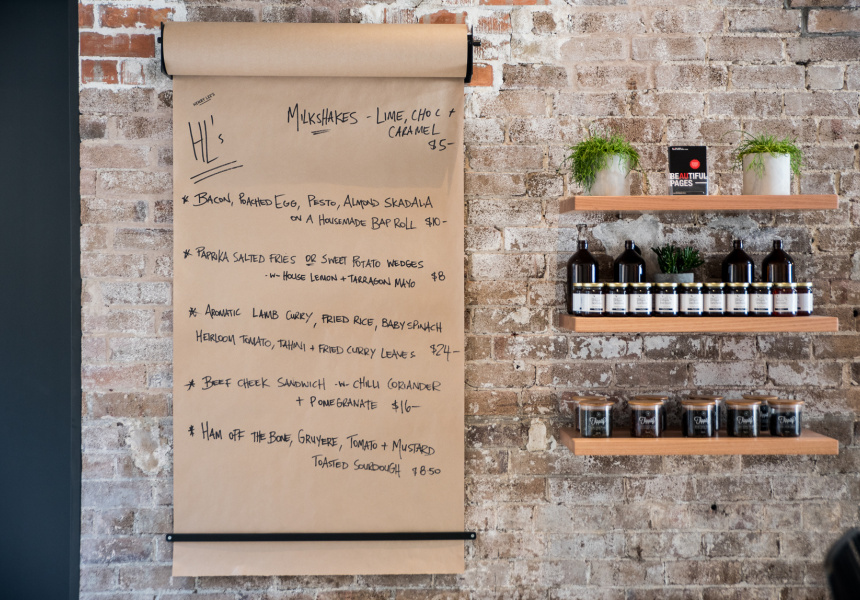 HENRY LEE'S
HL's
MILKSHAKES - LIME, CHOC +
CARAMEL
$5-
* BACON, POACHED EGG, PESTO, ALMOND SKADALA
ON A HOUSEMADE BAP ROLL $10-
* PAPRIKA SALTED FRIES OR SWEET POTATO WEDGES
-w- HOUSE LEMON + TARRAGON MAYO $8
* AROMATIC LAMB CURRY, FRIED RICE, BABY SPINACH
HEIRLOOM TOMATO, TAHINI + FRIED CURRY LEAVES $24-
* BEEF CHEEK SANDWICH -w- CHILLI CORIANDER
+ POMEGRANATE $16-
* HAM OFF THE BONE, GRUYERE, TOMATO + MUSTARD
TOASTED SOURDOUGH $8.50
BEAUTIFUL
PAGES